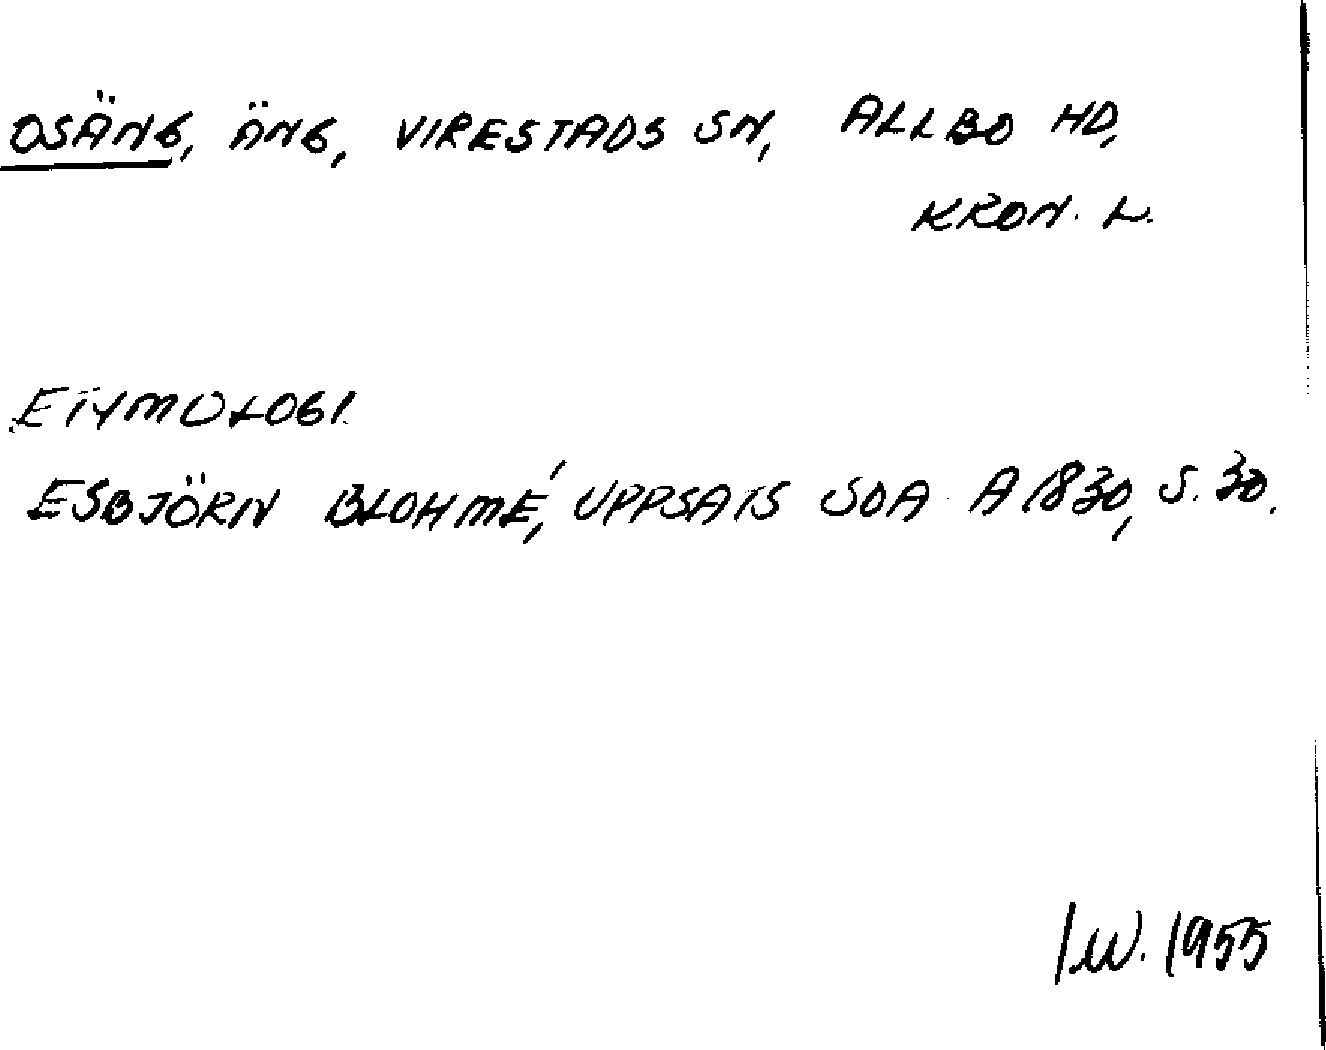 OSÄNG, ÄNG, VIRESTADS SN, ALLBO HD,
KRON. L.
ETYMOLOGI.
ESBJÖRN BLOHMÉ, UPPSATS SOA A1830, S. 30.
IW. 1955